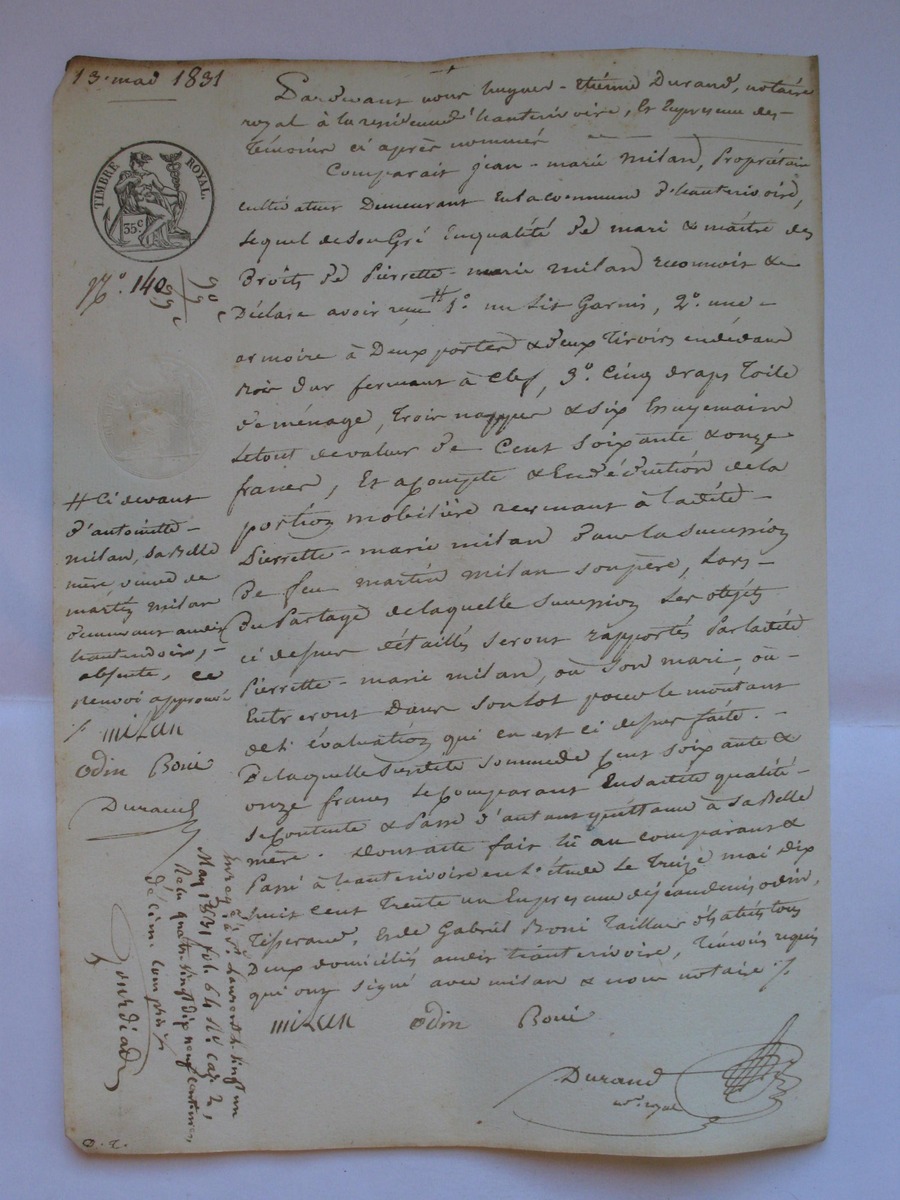 13 mai 1831
Pardevant nous hugues-Etienne Durand, notaire
royal à la residence d'hauterivoire, Et Enpresence des
Témoins ci après nommés
Comparait jean-marie milan, Propriétaire
cultivateur Demeurant En la commune d'hauterivoire,
lequel de son Gré En qualité de mari & maître des
Droits de Pierrette-marie milan reconnoit &
Déclare avoir reçu # 1° un Lit Garni, 2° une
armoire à Deux portes & deux Tiroirs en dedans
bois dur fermant à Clef, 3° Cinq draps Toile
de ménage, trois nappes & six Essuyemains
Le tout de valeur de Cent soixante & onze
francs, Et acompte & En déduction de la
portion mobilière revenant à ladite
Pierrette-marie milan dans la succession
De feu martin milan son père, Lors
Du Partage de laquelle succession Les objets
ci dessus détaillés seront rapportés Par ladite
Pierrette-marie milan, ou son mari, ou
Entreront Dans son lot pour le montant
de l'évaluation qui en est ci dessus faite.
De laquelle susdite somme de Cent soixante &
onze francs le Comparant En sadite qualité
se Contente & Passe d'autant quittance à sa Belle
mère. Dont acte fait lu au comparant &
Passé à hauterivoire en L'étude Le Treize mai Dix
huit cent Trente un En presence de jean denis odin,
Tisserand, Et de Gabriel Boni Tailleur d'habits tous
Deux domiciliés audit hauterivoire, Témoins requis
qui ont signé avec milan & nous notaire ./.
milan odin Boni
Durand
no.re royal
TIMBRE ROYAL.
35c
N.° 140
99 c
90 c
# Ci devant
d'antoinette
milan, sa Belle
mère, veuve de
martin milan
demeurant audit
hauterivoire,
absente, ce
renvoi approuvé
./. milan
odin Boni
Durand
Enregé à St Laurent le vingt un
May 1831 fol. 64 Ro. cas 2,
Reçu quatre vingt dix neuf centimes,
décime compris